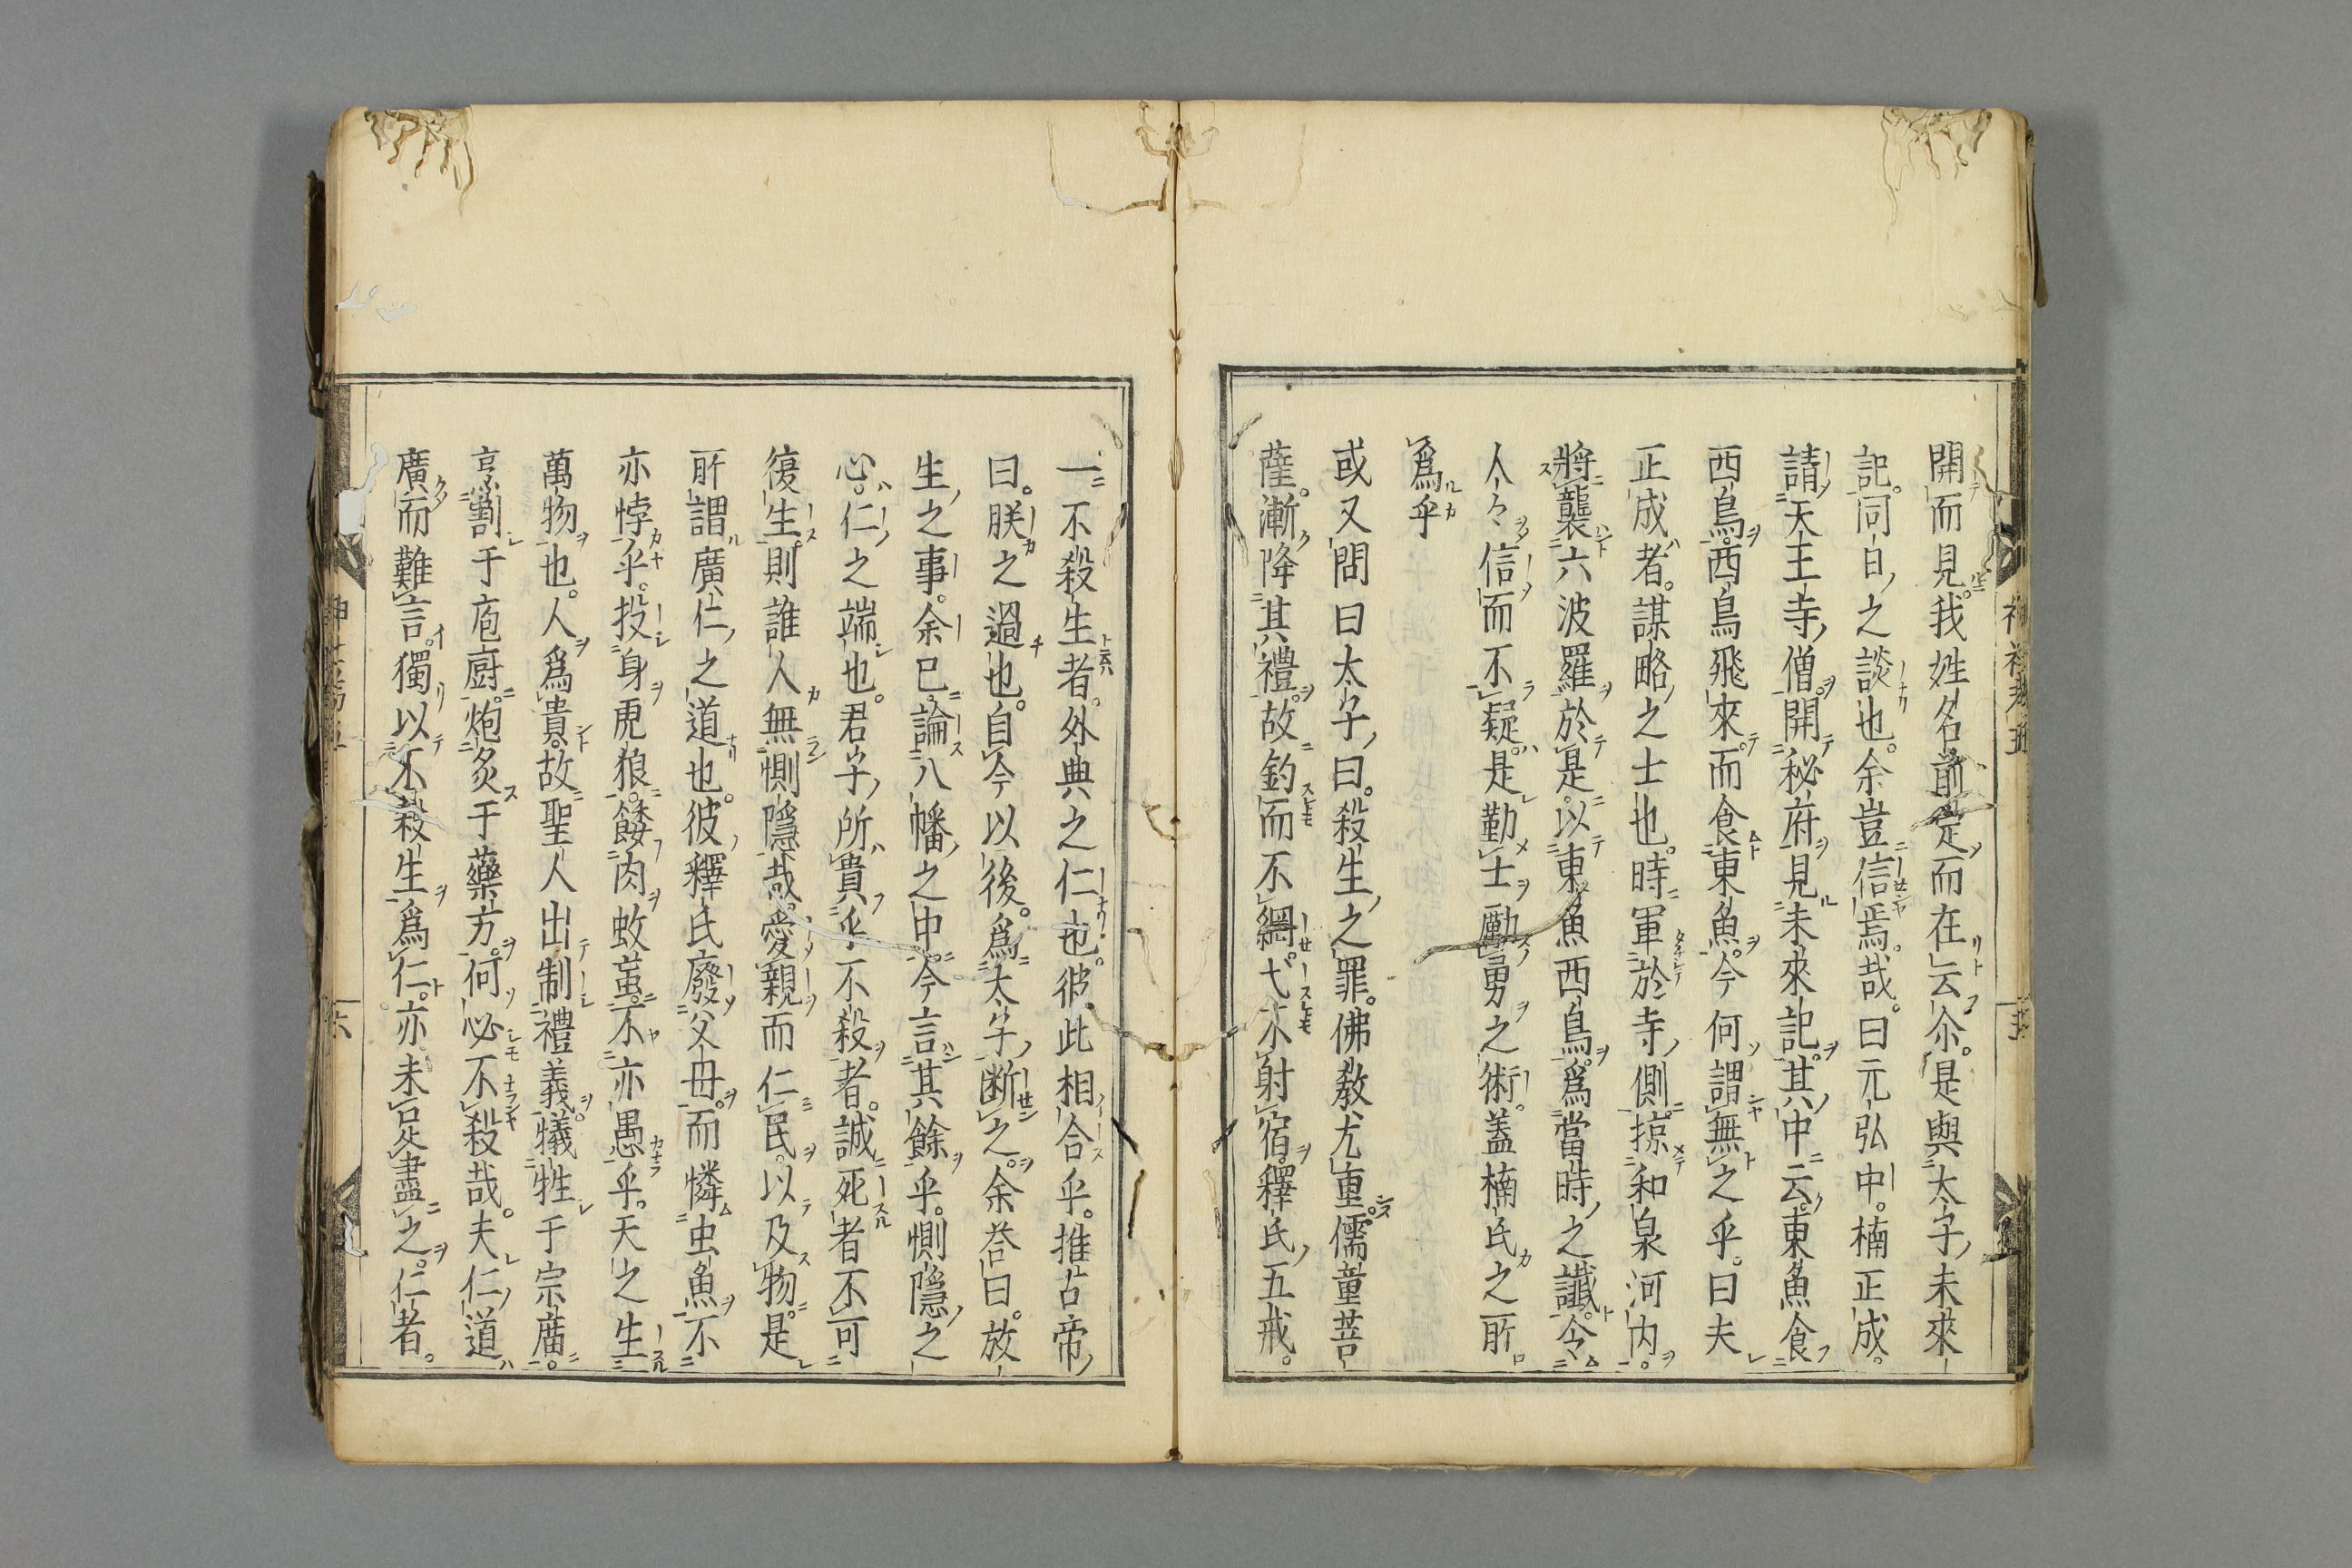 開而見我姓名前定而在云尒是與太子未來
記同日之談也。余豈信焉哉。曰元弘中。楠正成。
請天王寺僧開秘府見未來記。其中云東魚食
西鳥。西鳥飛來而食東魚。今何謂無之乎。曰夫
正成者。謀略之士也。時軍於寺側掠和泉河内。
將襲六波羅於是以東魚西鳥爲當時之讖。令
人々信而不疑。是勤士勵勇之術。蓋楠氏之所
爲乎
或又問曰太子曰。殺生之罪。佛教尤重。儒童菩
薩。漸降其禮。故釣而不綱。弋不射宿。釋氏五戒。
一不殺生者。外典之仁也。彼此相合乎。推古帝
曰。朕之過也。自今以後。爲太子断之。余荅曰。放
生之事。余已論八幡之中。今言其餘乎。惻隱之
心。仁之端也。君子所貴乎不殺者。誠死者不可
復生則誰人無惻隱哉。愛親而仁民以及物。是
所謂廣仁之道也。彼釋氏廢父母而憐虫魚不
亦悖乎。投身虎狼。餧肉蚊䖟。不亦愚乎。天之生
萬物也。人爲貴。故聖人出制禮義。犠牲于宗廟。
烹割于庖厨。炮炙于藥方。何必不殺哉。夫仁道
廣而難言。獨以不殺生爲仁。亦未足盡之。仁者。